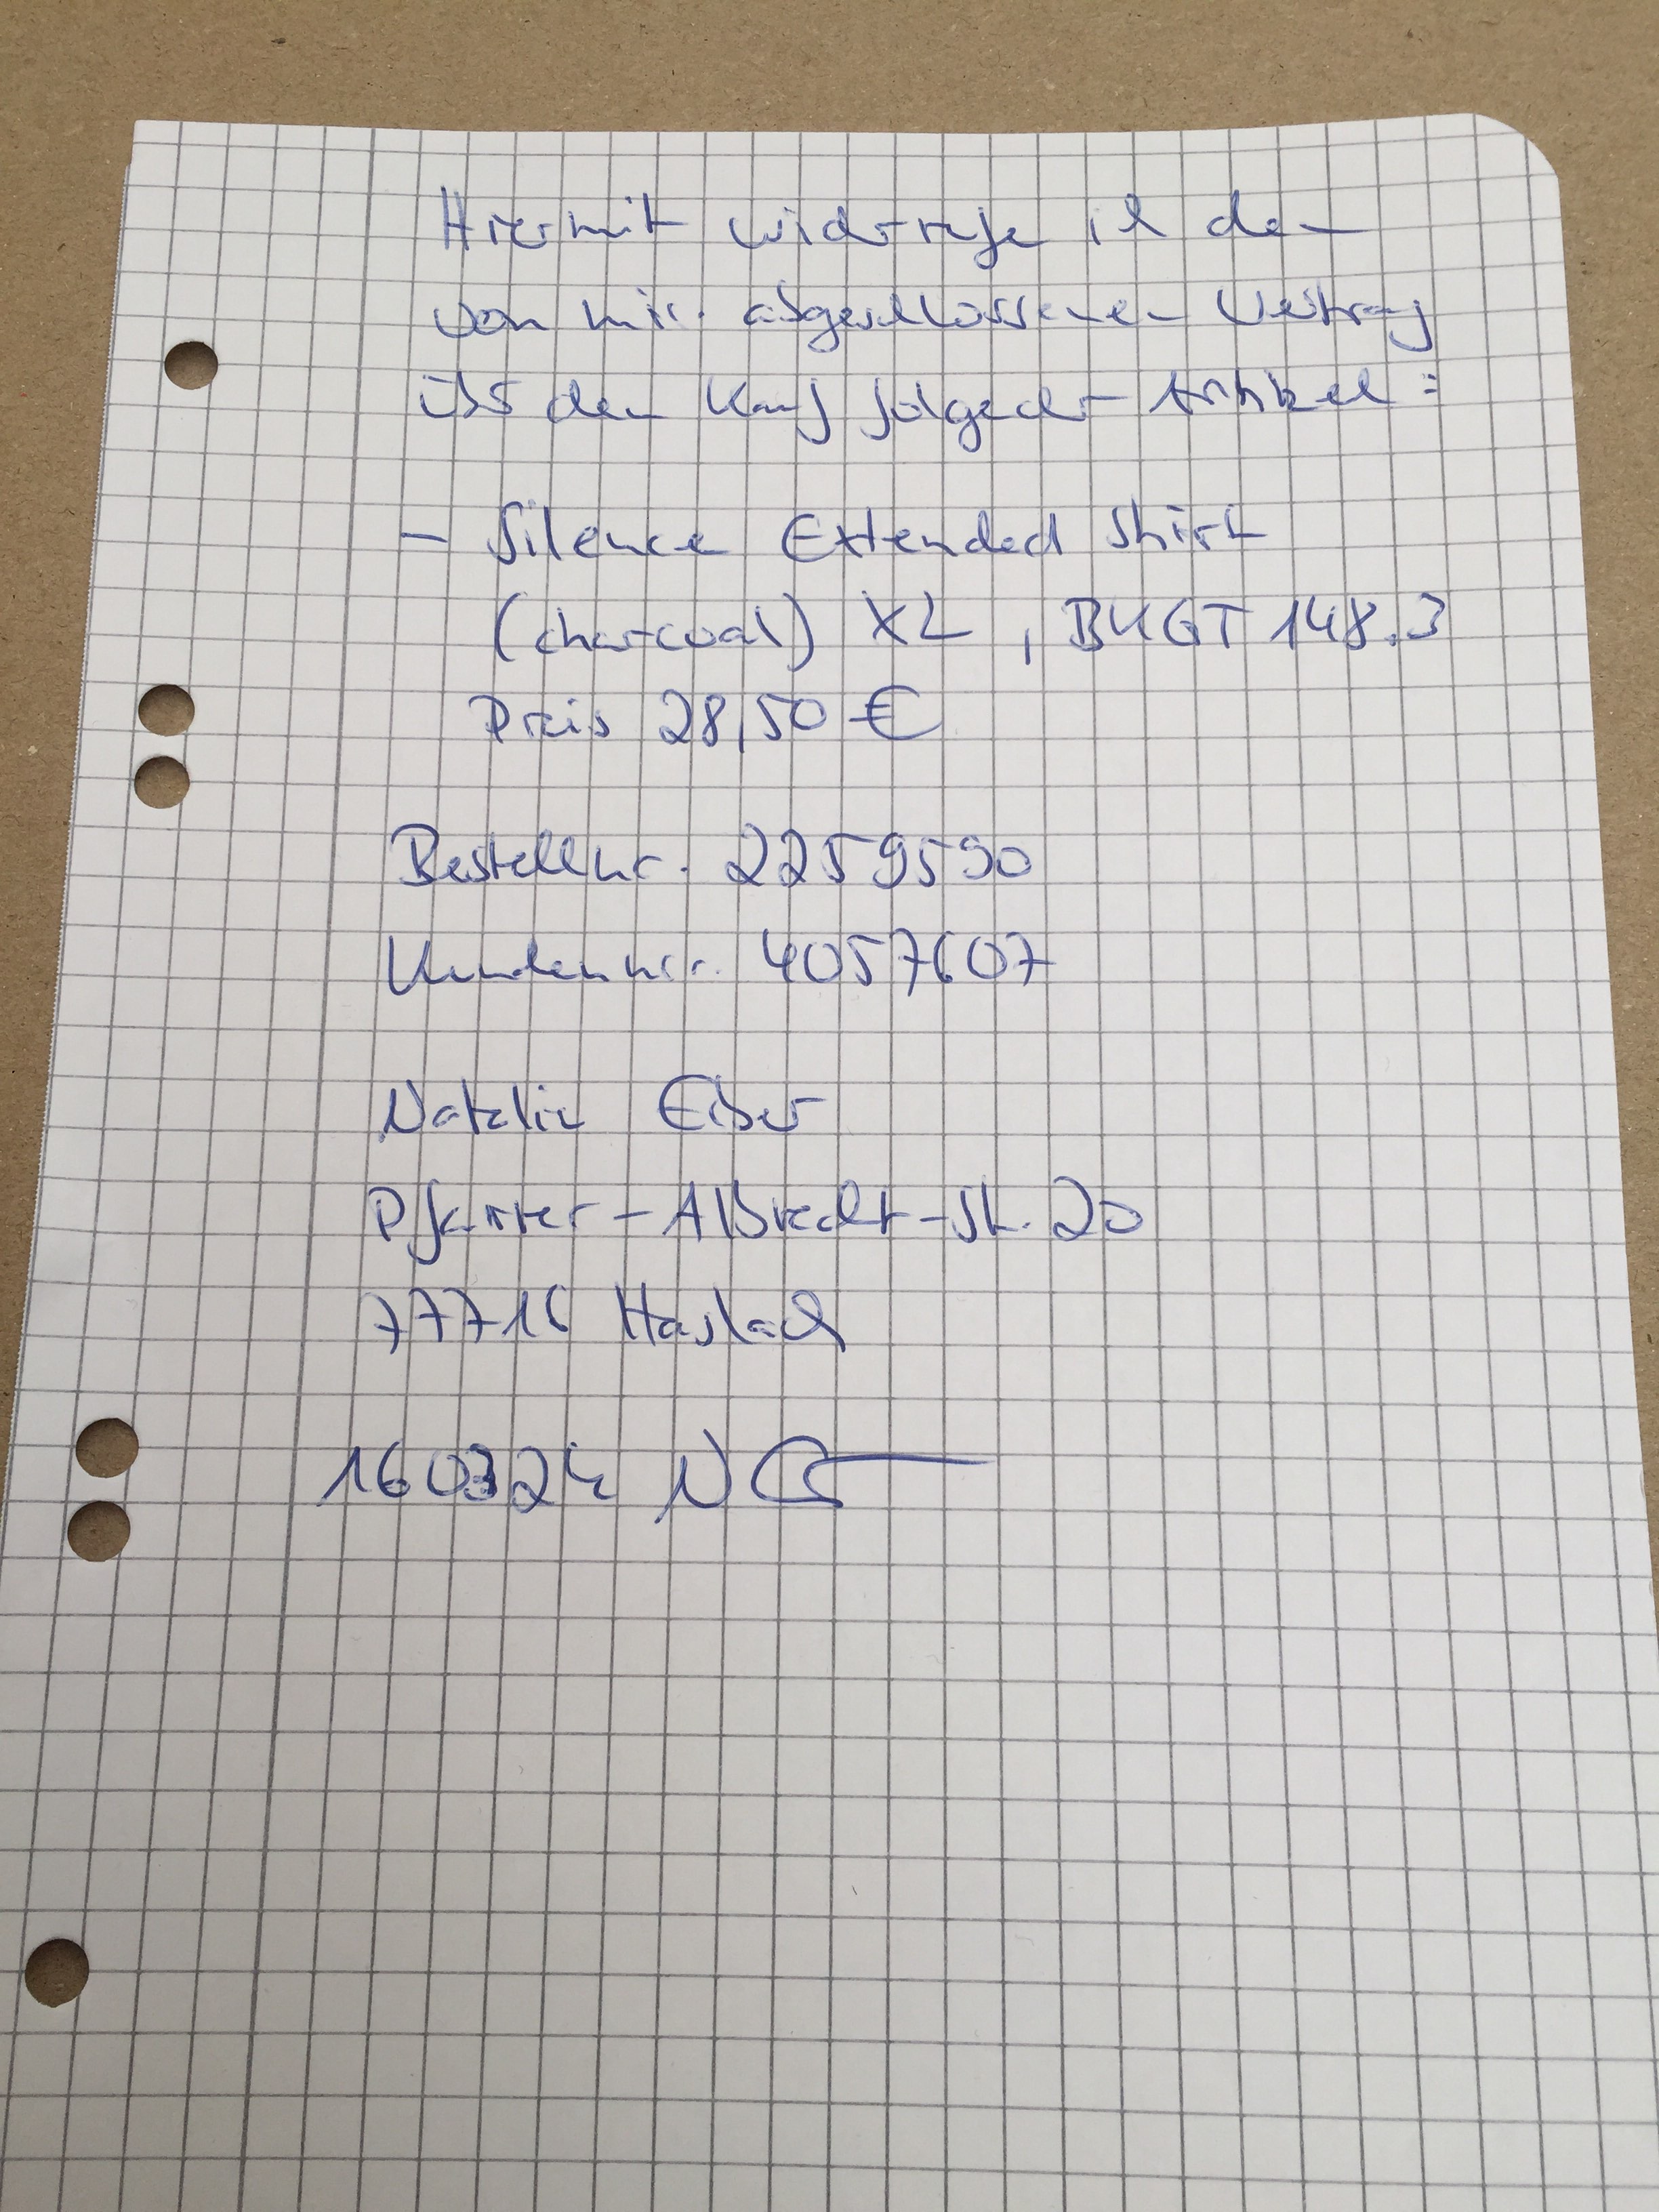 Hiermit widerrufe ich den
von mir abgeschlossenen Vertrag
über den Kauf folgender Artikel:
- Silence Extended Shirt
(charcoal) XL, BUGT 148.3
Preis 28,50 €
Bestellnr. 2259590
Kundennr. 4057607
Natalie Eiber
Pfarrer-Albrecht-Str. 20
77716 Haslach
160324